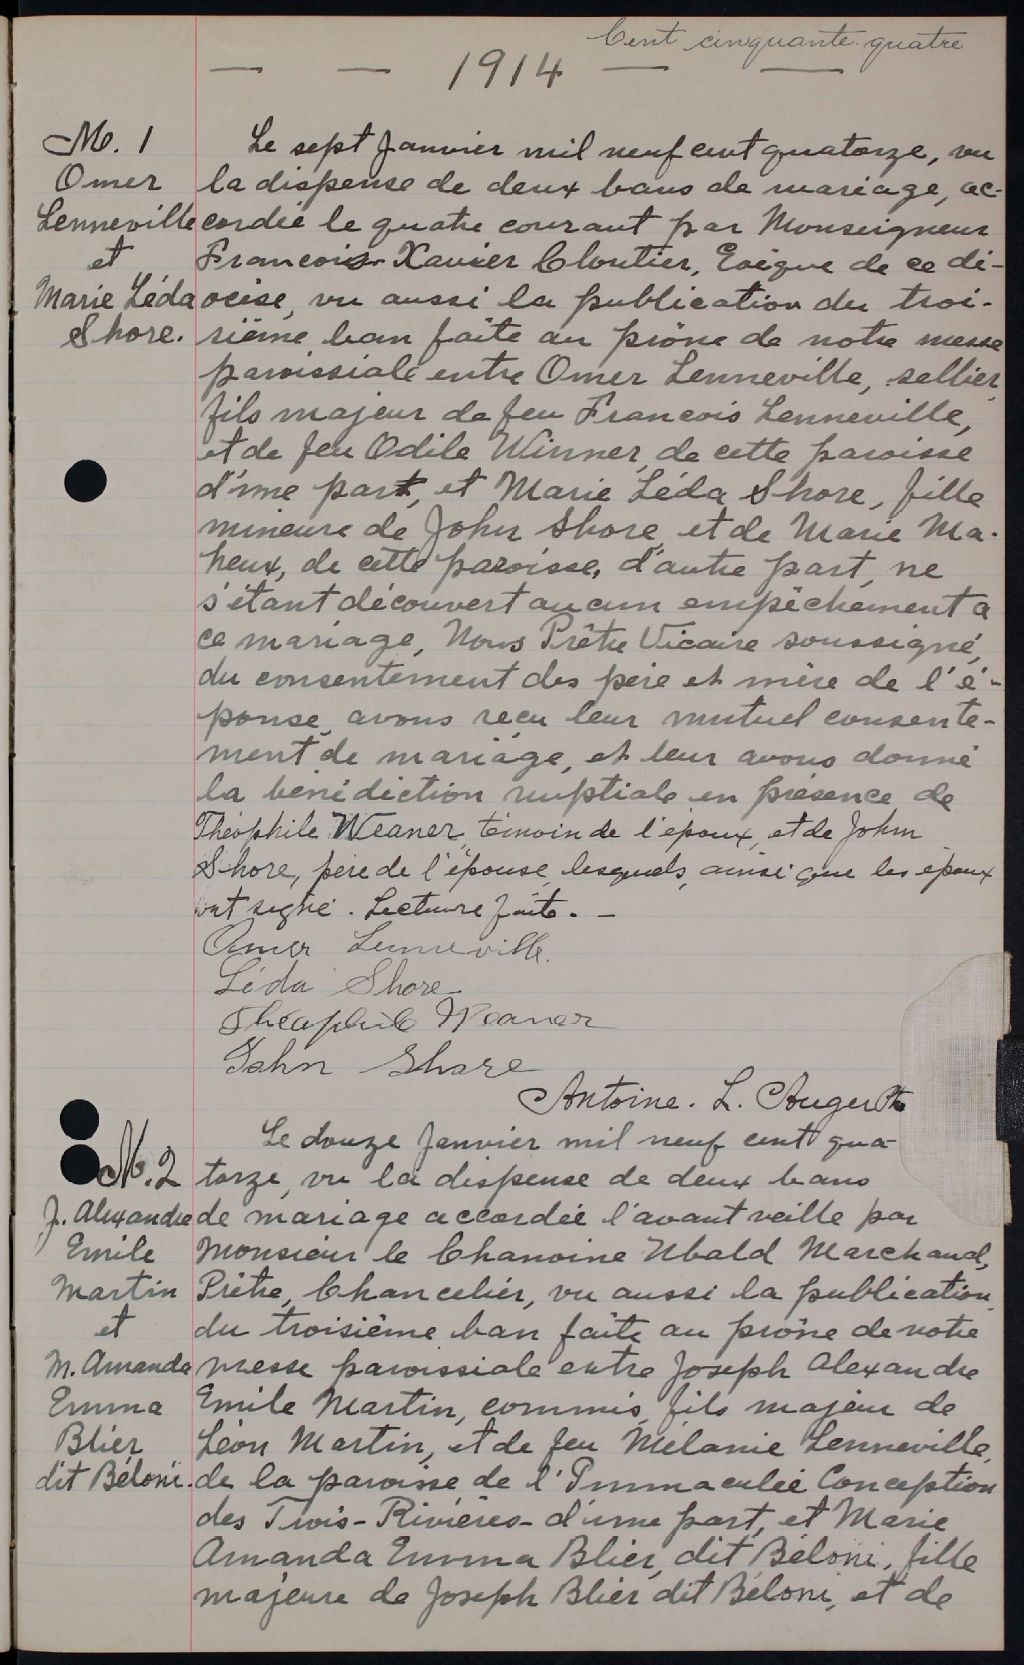 Cent cinquante-quatre
1914
M. 1
Omer
Lenneville
et
Marie Léda
Shore.
Le sept Janvier mil neuf cent quatorze, vu
la dispense de deux bans de mariage, ac-
cordée le quatre courant par Monseigneur
Francois-Xavier Cloutier, Evêque de ce di-
ocèse, vu aussi la publication du troi-
sième ban faite au prône de notre messe
paroissiale entre Omer Lenneville, sellier,
fils majeur de feu Francois Lenneville,
et de feu Odile Winner, de cette paroisse
d'une part, et Marie Léda Shore, fille
mineure de John Shore, et de Marie Ma-
heux, de cette paroisse, d'autre part, ne
s'étant découvert aucun empêchement à
ce mariage, Nous Prêtre Vicaire soussigné,
du consentement des père et mère de l'é-
pouse, avons reçu leur mutuel consente-
ment de mariage, et leur avons donné
la bénédiction nuptiale en présence de
Théophile Weaner, témoin de l'époux, et de John
Shore, père de l'épouse, lesquels, ainsi que les époux
ont signé. Lecture faite. -
Omer Lenneville.
Léda Shore
Theophile Weaner
John Shore
Antoine. L. Auger Ptre
M. 2
J. Alexandre
Emile
Martin
et
M. Amanda
Emma
Blier
dit Béloni.
Le douze Janvier mil neuf cent qua-
torze, vu la dispense de deux bans
de mariage accordée l'avant veille par
Monsieur le Chanoine Ubald Marchand,
Prêtre, Chancelier, vu aussi la publication
du troisième ban faite au prône de notre
messe paroissiale entre Joseph Alexandre
Emile Martin, commis, fils majeur de
Léon Martin, et de feu Mélanie Lenneville,
de la paroisse de l'Immaculée Conception
des Trois-Rivières d'une part, et Marie
Amanda Emma Blier, dit Béloni, fille
majeure de Joseph Blier dit Béloni, et de